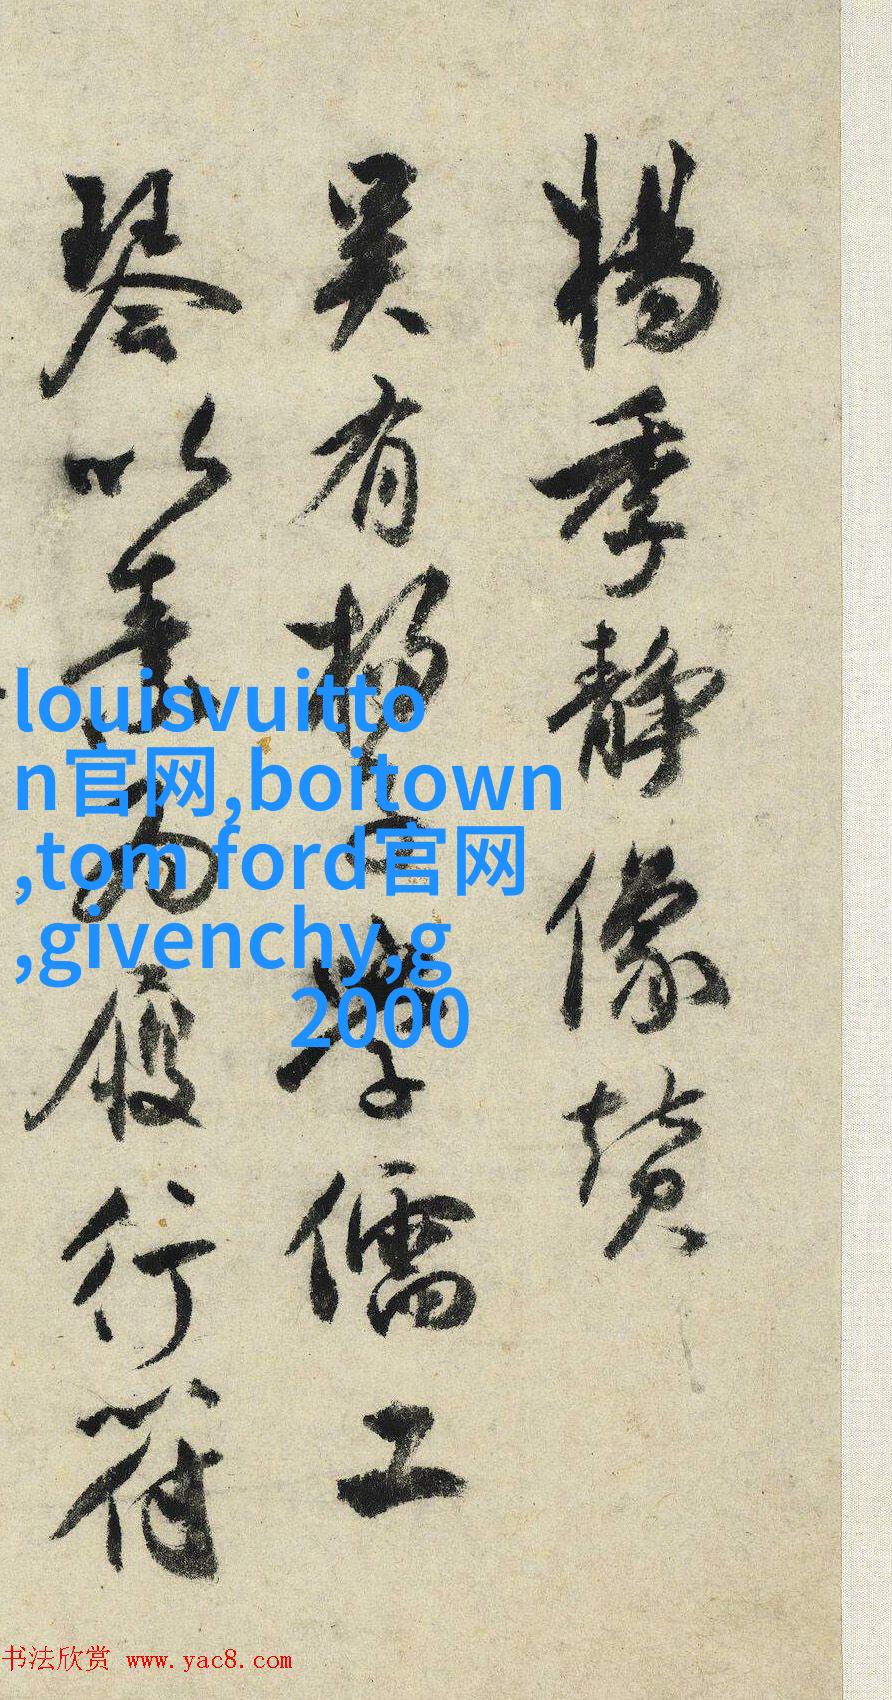 楊季静像赞
吴有楊子學儒工
琴以為履行符
louisvuitto
n官网,boitown
,tom ford官网
,givenchy,g
2000
书法欣赏 www.yac8.com